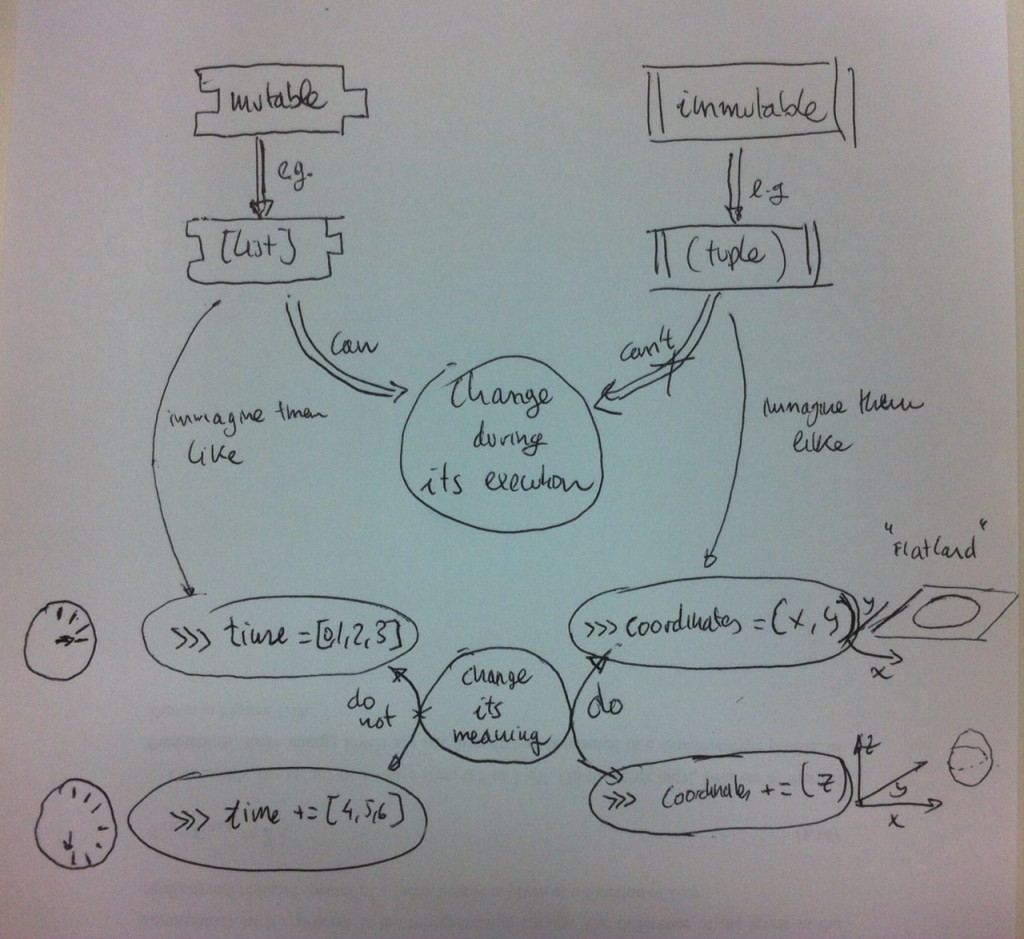 mutable
immutable
e.g.
e.g
[list]
(tuple)
can
can't
change
during
its execution
immagine them
like
immagine them
like
"Flatland"
>>> time = [0,1,2,3]
>>> coordinates = (x, y)
y
x
change
its
meaning
do
not
do
>>> time += [4,5,6]
>>> coordinates += (z)
z
y
x